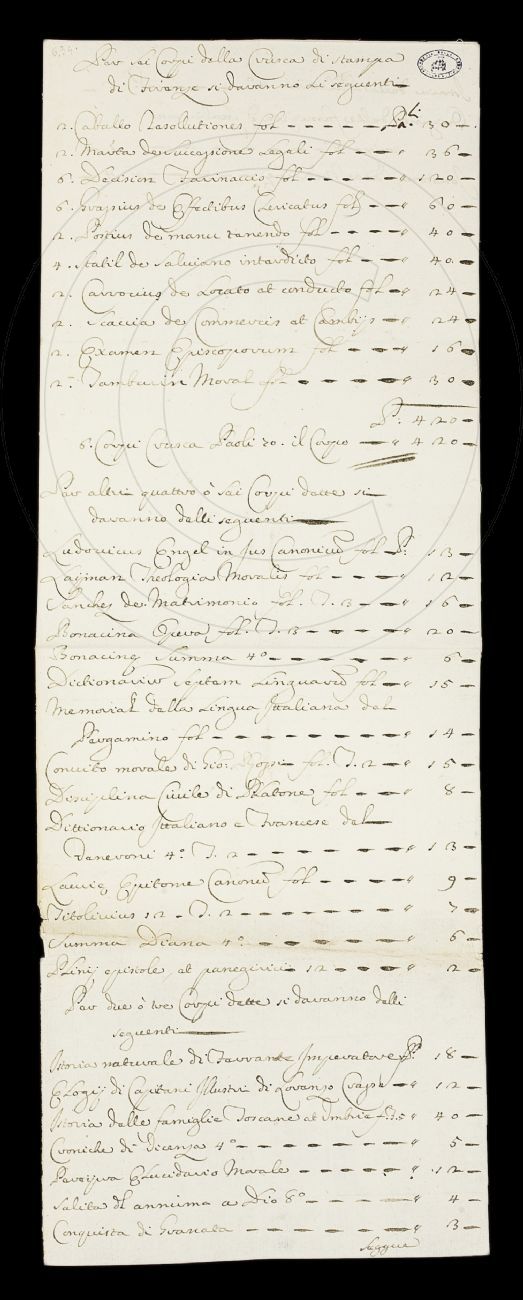 Per sei Corpi della Crusca di stampa
di Firenze si davanno li seguenti
2. Caballo Resolutiones fol P.li 30
2. Marta de successione Legali fol " 36
6. Decision Farinaccio fol " 120
6. de Effectibus Clericatus fol " 60
2. Postius de manu tenendo fol " 40
4. Statil de Salviano interdicto fol " 40
2. Carrocius de Locato et conducto fol " 24
2. Scaccia de Commercis et Cambijs " 24
2. Examen Episcoporum fol " 16
2. Tamburin Moral fol " 30
P. 420
6. Corpi Crusca Paoli 70. il Corpo " 420
Per altri quattro ò sei Corpi dette si
davanno delli seguenti
Ludovicus Engel in Jus Canonicũ fol P. 13
Laijman Theologia Moralis fol " 12
Sanchez de Matrimonio fol. T. 3 " 16
Bonacina Opera fol. T. 3 " 20
Bonacine Summa 4º " 6
Dictionariũ septem Linguarũ fol " 15
Memorial della Lingua Ittaliana del
Pergamino fol " 14
Convito morale di Gio: Rossi fol. T. 2 " 15
Disciplina Civile di Platone fol " 8
Dittionario Ittaliano e Francese del
Veneroni 4º T. 2 " 13
Epitome Canonũ fol " 9
Titolivius 12 T. 2 " 7
Summa Diana 4º " 6
Plinij epistole, et panegirici 12 " 2
Per due ò tre Corpi dette si davanno delli
seguenti
Istoria naturale di Ferrante Imperatore P. 18
Elogij di Capitani Illustri di Lorenzo Crasso " 12
Istoria delle famiglie Toscane et Umbrie T. 5 " 40
Croniche di Vicenza 4º " 5
Elucidario Morale " 12
Salita dl annima a Dio 8º " 4
Conquista di Granata " 3
Seggue